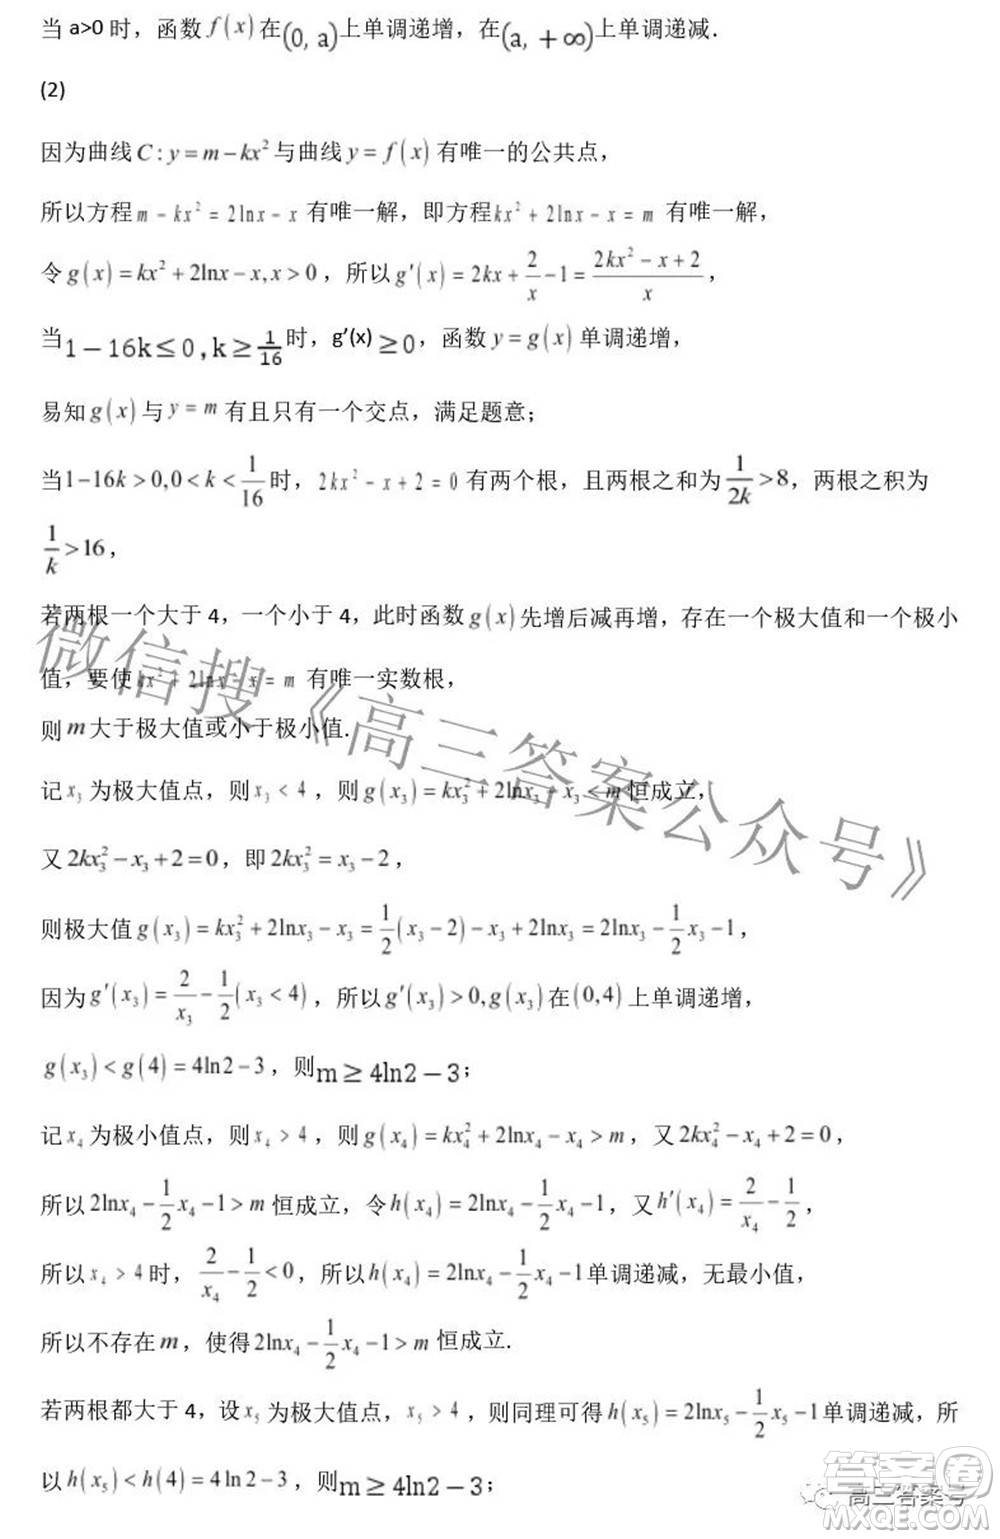 当 a>0 时，函数 f(x) 在(0, a)上单调递增，在(a, +∞)上单调递减.
(2)
因为曲线 C : y = m − kx² 与曲线 y = f(x) 有唯一的公共点，
所以方程 m − kx² = 2lnx − x 有唯一解，即方程 kx² + 2lnx − x = m 有唯一解，
令 g(x) = kx² + 2lnx − x, x > 0 ，所以 g′(x) = 2kx + 2/x − 1 = (2kx² − x + 2)/x ，
当 1 − 16k ≤ 0 , k ≥ 1/16 时，g′(x) ≥ 0 ，函数 y = g(x) 单调递增，
易知 g(x) 与 y = m 有且只有一个交点，满足题意；
当 1−16k > 0, 0 < k < 1/16 时， 2kx² − x + 2 = 0 有两个根，且两根之和为 1/(2k) > 8，两根之积为
1/k > 16 ，
若两根一个大于 4，一个小于 4，此时函数 g(x) 先增后减再增，存在一个极大值和一个极小
值，要使 kx² + 2lnx − x = m 有唯一实数根，
则 m 大于极大值或小于极小值.
记 x₃ 为极大值点，则 x₃ < 4 ，则 g(x₃) = kx₃² + 2lnx₃ − x₃ < m 恒成立，
又 2kx₃² − x₃ + 2 = 0，即 2kx₃² = x₃ − 2 ，
则极大值 g(x₃) = kx₃² + 2lnx₃ − x₃ = 1/2(x₃ − 2) − x₃ + 2lnx₃ = 2lnx₃ − 1/2 x₃ − 1 ，
因为 g′(x₃) = 2/x₃ − 1/2 (x₃ < 4) ，所以 g′(x₃) > 0, g(x₃) 在 (0,4) 上单调递增，
g(x₃) < g(4) = 4ln2 − 3 ，则 m ≥ 4ln2 − 3；
记 x₄ 为极小值点，则 x₄ > 4 ，则 g(x₄) = kx₄² + 2lnx₄ − x₄ > m ，又 2kx₄² − x₄ + 2 = 0 ，
所以 2lnx₄ − 1/2 x₄ − 1 > m 恒成立，令 h(x₄) = 2lnx₄ − 1/2 x₄ − 1，又 h′(x₄) = 2/x₄ − 1/2 ，
所以 x₄ > 4 时， 2/x₄ − 1/2 < 0 ，所以 h(x₄) = 2lnx₄ − 1/2 x₄ − 1 单调递减，无最小值，
所以不存在 m ，使得 2lnx₄ − 1/2 x₄ − 1 > m 恒成立.
若两根都大于 4，设 x₅ 为极大值点， x₅ > 4 ，则同理可得 h(x₅) = 2lnx₅ − 1/2 x₅ − 1 单调递减，所
以 h(x₅) < h(4) = 4ln2 − 3 ，则 m ≥ 4ln2 − 3；
微信搜《高三答案公众号》
高三答案号
答案圈
MXQE.COM